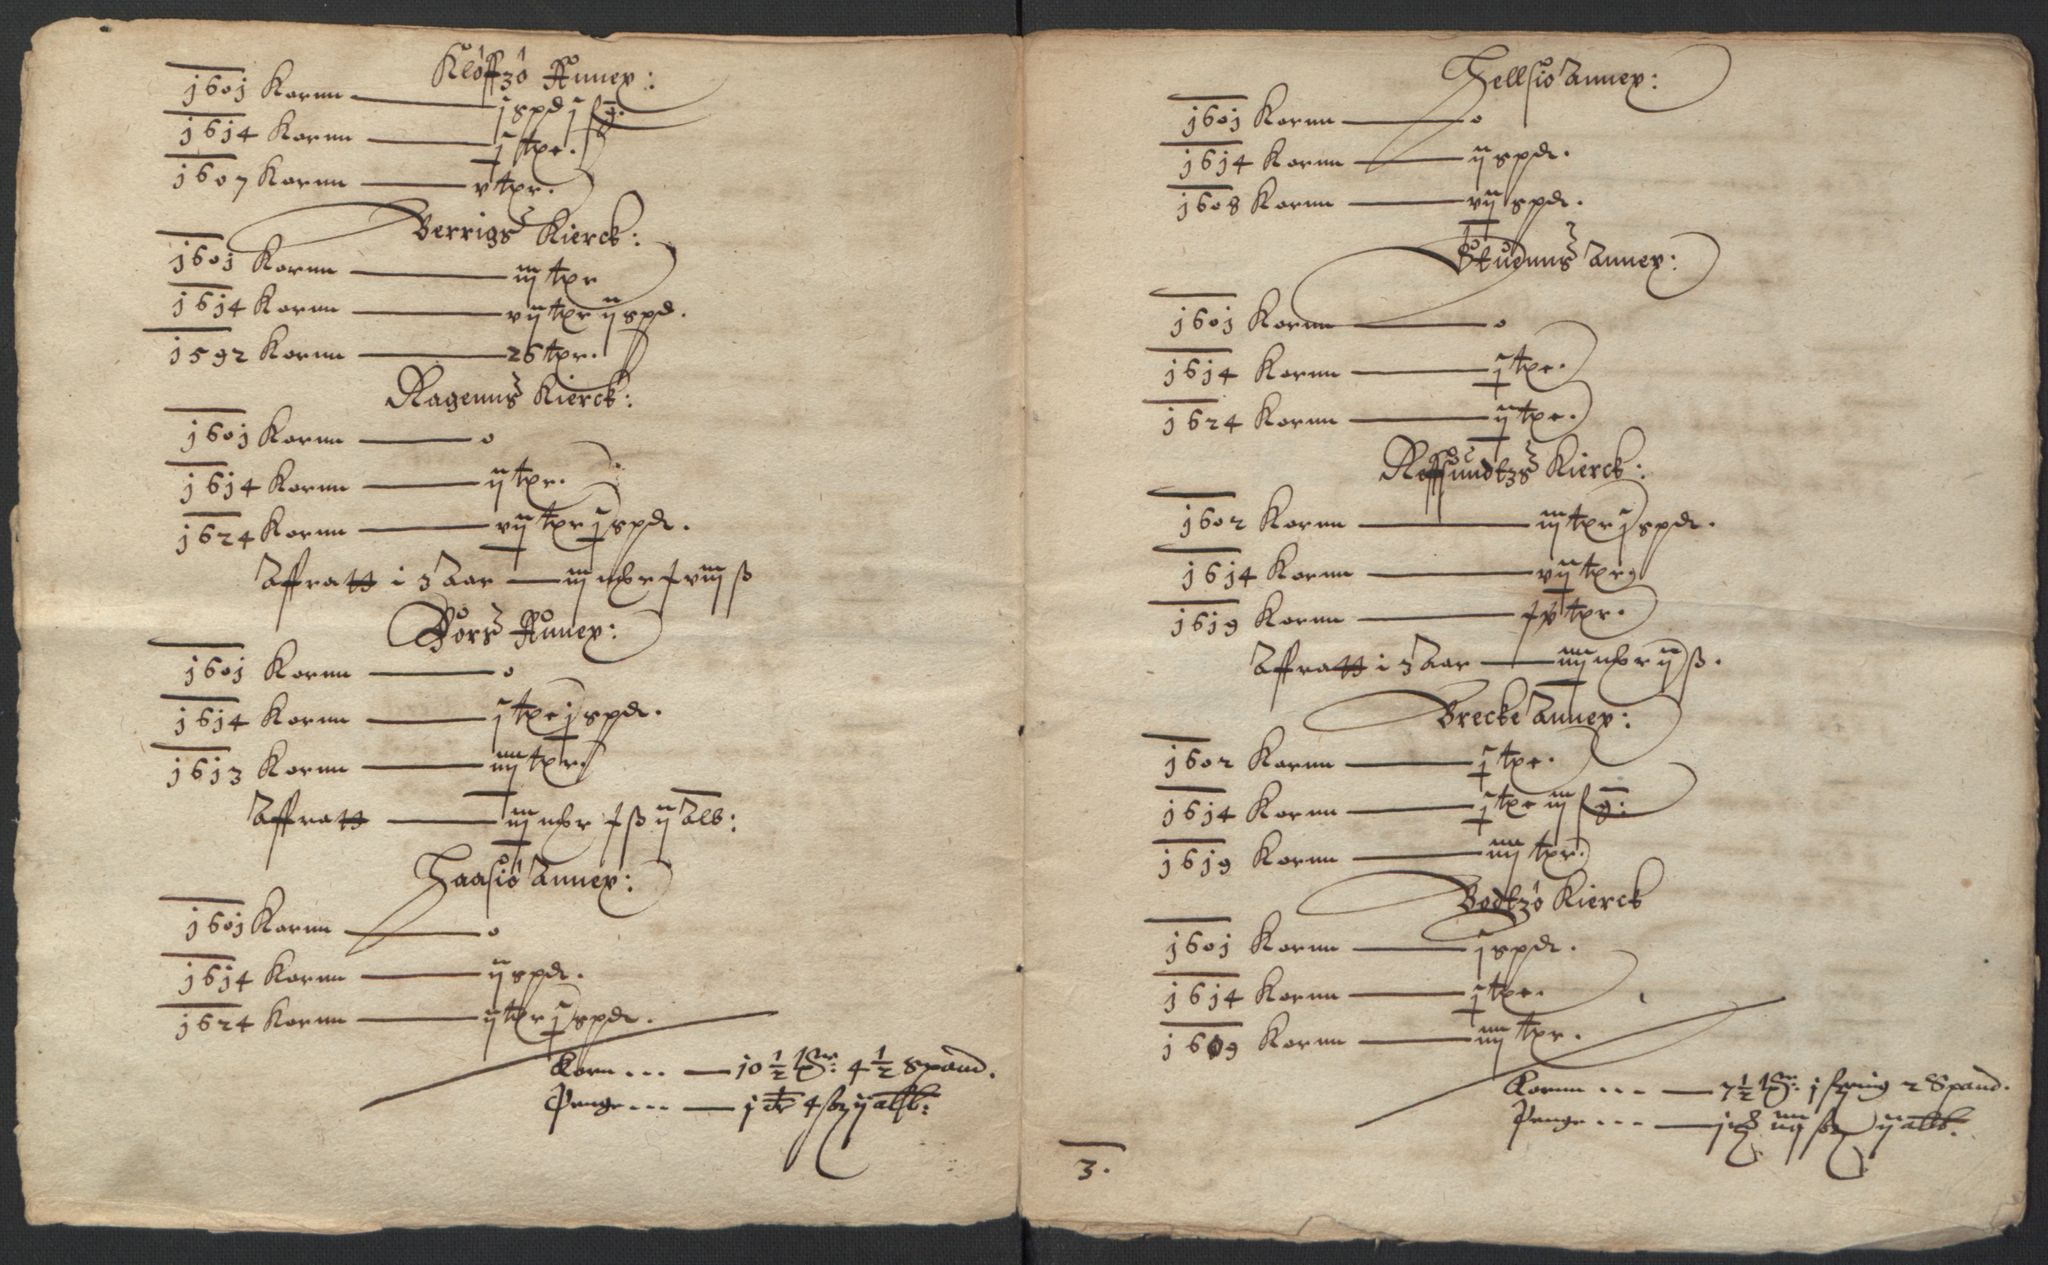 Klöffzö Annex:
1601 Kornn — j spd j
1614 Kornn — j tpe.
1607 Kornn — v tpr.
Berrigs Kierck:
1601 Kornn — iij tpr
1614 Kornn — vij tpr ij spd.
1592 Kornn — 26 tpr.
Ragenns Kierck:
1601 Kornn — 0
1614 Kornn — ij tpr.
1624 Kornn — vij tpr j spd.
Affratt i 3 Aar — iij mkr viij ß
Fors Annex:
1601 Kornn — 0
1614 Kornn — j tpe j spd.
1613 Kornn — iiij tpr.
Affratt — iij mkr ß ij Alb:
Haasiö Annex:
1601 Kornn — 0
1614 Kornn — ij spd.
1624 Kornn — ij tpr j spd.
Korn ... — 10 1/2 tpr: 4 1/2 Spand.
Penge ... — j dr 4 ß ij alb:
Hellsiö Annex:
1601 Kornn — 0
1614 Kornn — ij spd.
1608 Kornn — vij spd.
Stuenns Annex:
1601 Kornn — 0
1614 Kornn — j tpe.
1624 Kornn — ij tpe.
Reffsundtzs Kierck:
1602 Kornn — iij tpr j spd.
1614 Kornn — vij tpr
1619 Kornn — tpr.
Affratt i 3 Aar — iiij mkr ij ß.
Brecke Annex:
1602 Kornn — j tpe.
1614 Kornn — j tpe iij
1619 Kornn — iiij tpr.
Bodtzö Kierck
1601 Kornn — j spd.
1614 Kornn — j tpe.
1609 Kornn — iiij tpr.
Kornn ... — 7 1/2 tpr: j fring 2 Spand.
Penge ... — j iiij ß ij alb.
3.